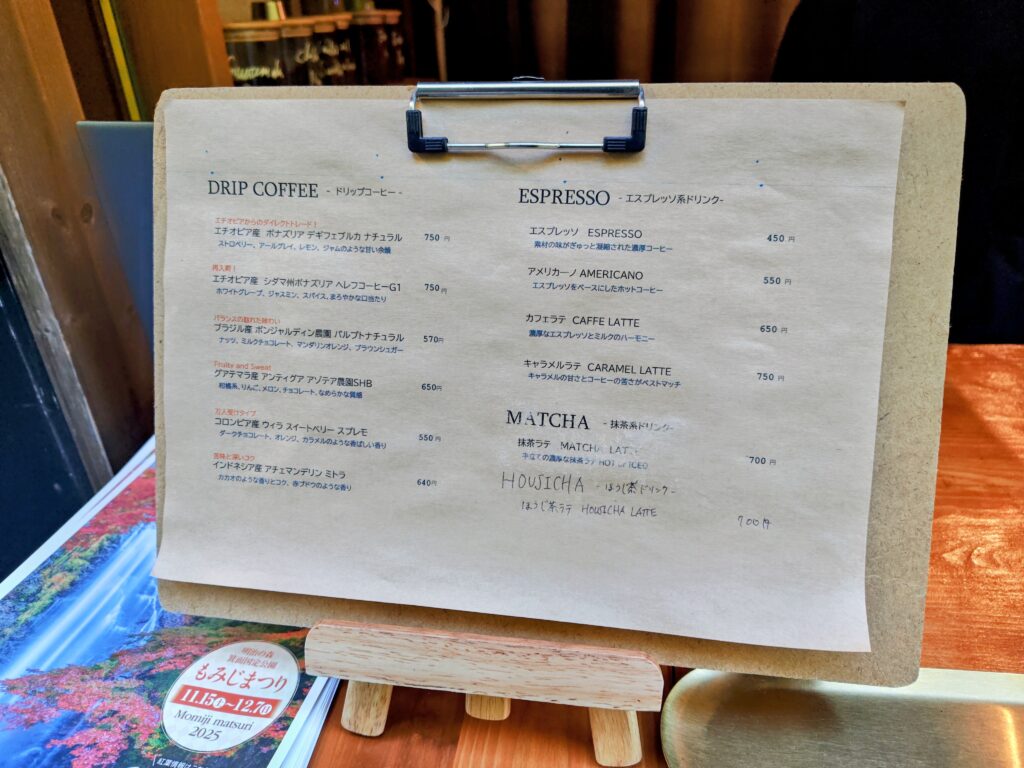 DRIP COFFEE - ドリップコーヒー -
エチオピアからのダイレクトトレード！
エチオピア産 ボナズリア デギフェブルカ ナチュラル 750 円
ストロベリー、アールグレイ、レモン、ジャムのような甘い余韻
再入荷！
エチオピア産 シダマ州ボナズリア ヘレフコーヒーG1 750 円
ホワイトグレープ、ジャスミン、スパイス、まろやかな口当たり
バランスの取れた味わい
ブラジル産 ボンジャルディン農園 パルプトナチュラル 570円
ナッツ、ミルクチョコレート、マンダリンオレンジ、ブラウンシュガー
Fruity and Sweat
グアテマラ産 アンティグア アゾテア農園SHB 650円
柑橘系、りんご、メロン、チョコレート、なめらかな質感
万人受けタイプ
コロンビア産 ウィラ スイートベリー スプレモ 550 円
ダークチョコレート、オレンジ、カラメルのような香ばしい香り
苦味と深いコク
インドネシア産 アチェマンデリン ミトラ 640円
カカオのような香りとコク、赤ブドウのような香り
ESPRESSO - エスプレッソ系ドリンク-
エスプレッソ ESPRESSO 450 円
素材の味がぎゅっと凝縮された濃厚コーヒー
アメリカーノ AMERICANO 550 円
エスプレッソをベースにしたホットコーヒー
カフェラテ CAFFE LATTE 650 円
濃厚なエスプレッソとミルクのハーモニー
キャラメルラテ CARAMEL LATTE 750 円
キャラメルの甘さとコーヒーの苦さがベストマッチ
MATCHA - 抹茶系ドリンク-
抹茶ラテ MATCHA LATTE 700 円
手立ての濃厚な抹茶ラテ HOT or ICED
HOUJICHA - ほうじ茶ドリンク-
ほうじ茶ラテ HOUJICHA LATTE 700円
明治の森
箕面国定公園
もみじまつり
11.15土~12.7日
Momiji matsuri
2025